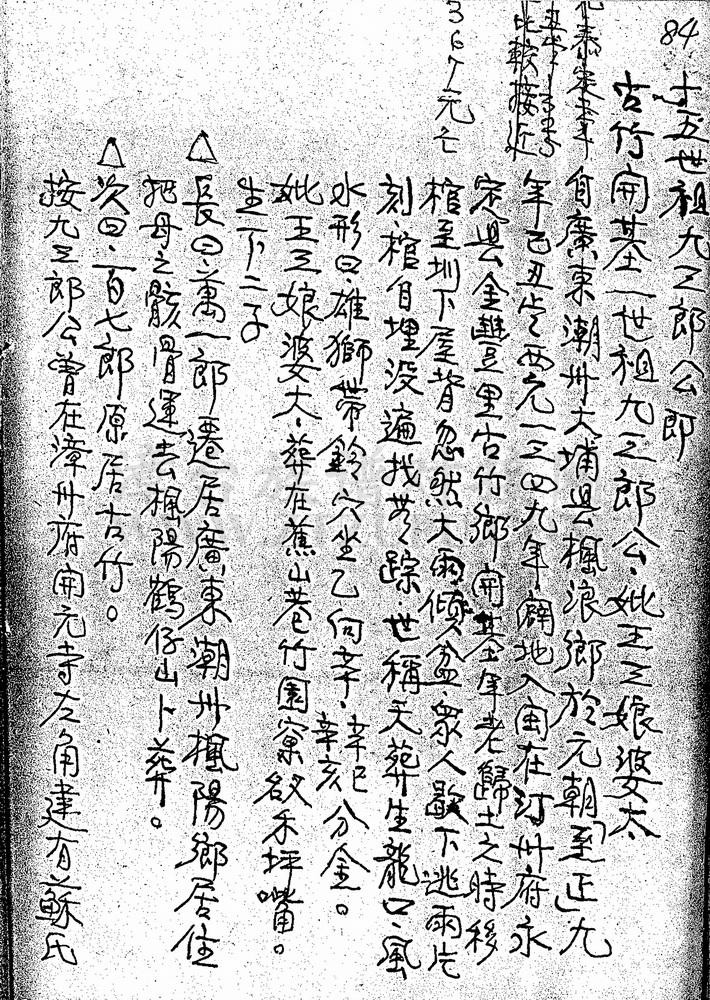 84
十五世祖九三郎公郎
古竹開基一世祖九三郎公、妣王三娘婆太、
自廣東潮州大埔县楓浪鄉於元朝「至正九
年己丑岁西元一三四九年、闢地入闽在汀州府永
定县金豐里古竹鄉開基年老歸土之時移
棺至圳下屋背忽然大雨傾盆、眾人歇下逃雨片
刻、棺自埋没、遍找無踪、世稱天葬生龍口、風
水形曰、雄獅带鈴穴坐乙向辛、辛巳辛亥分金。
妣王三娘婆太、葬在蕉山巷竹園寮 禾坪嘴。
生下二子
△長曰、萬一郎遷居廣東潮州楓陽鄉居住
把母之骸骨運去楓陽鶴仔山卜葬。
△次曰、一百七郎原居古竹。
按九三郎公曾在漳州府開元寺左角建有蘇氏
比較接近
367元亡